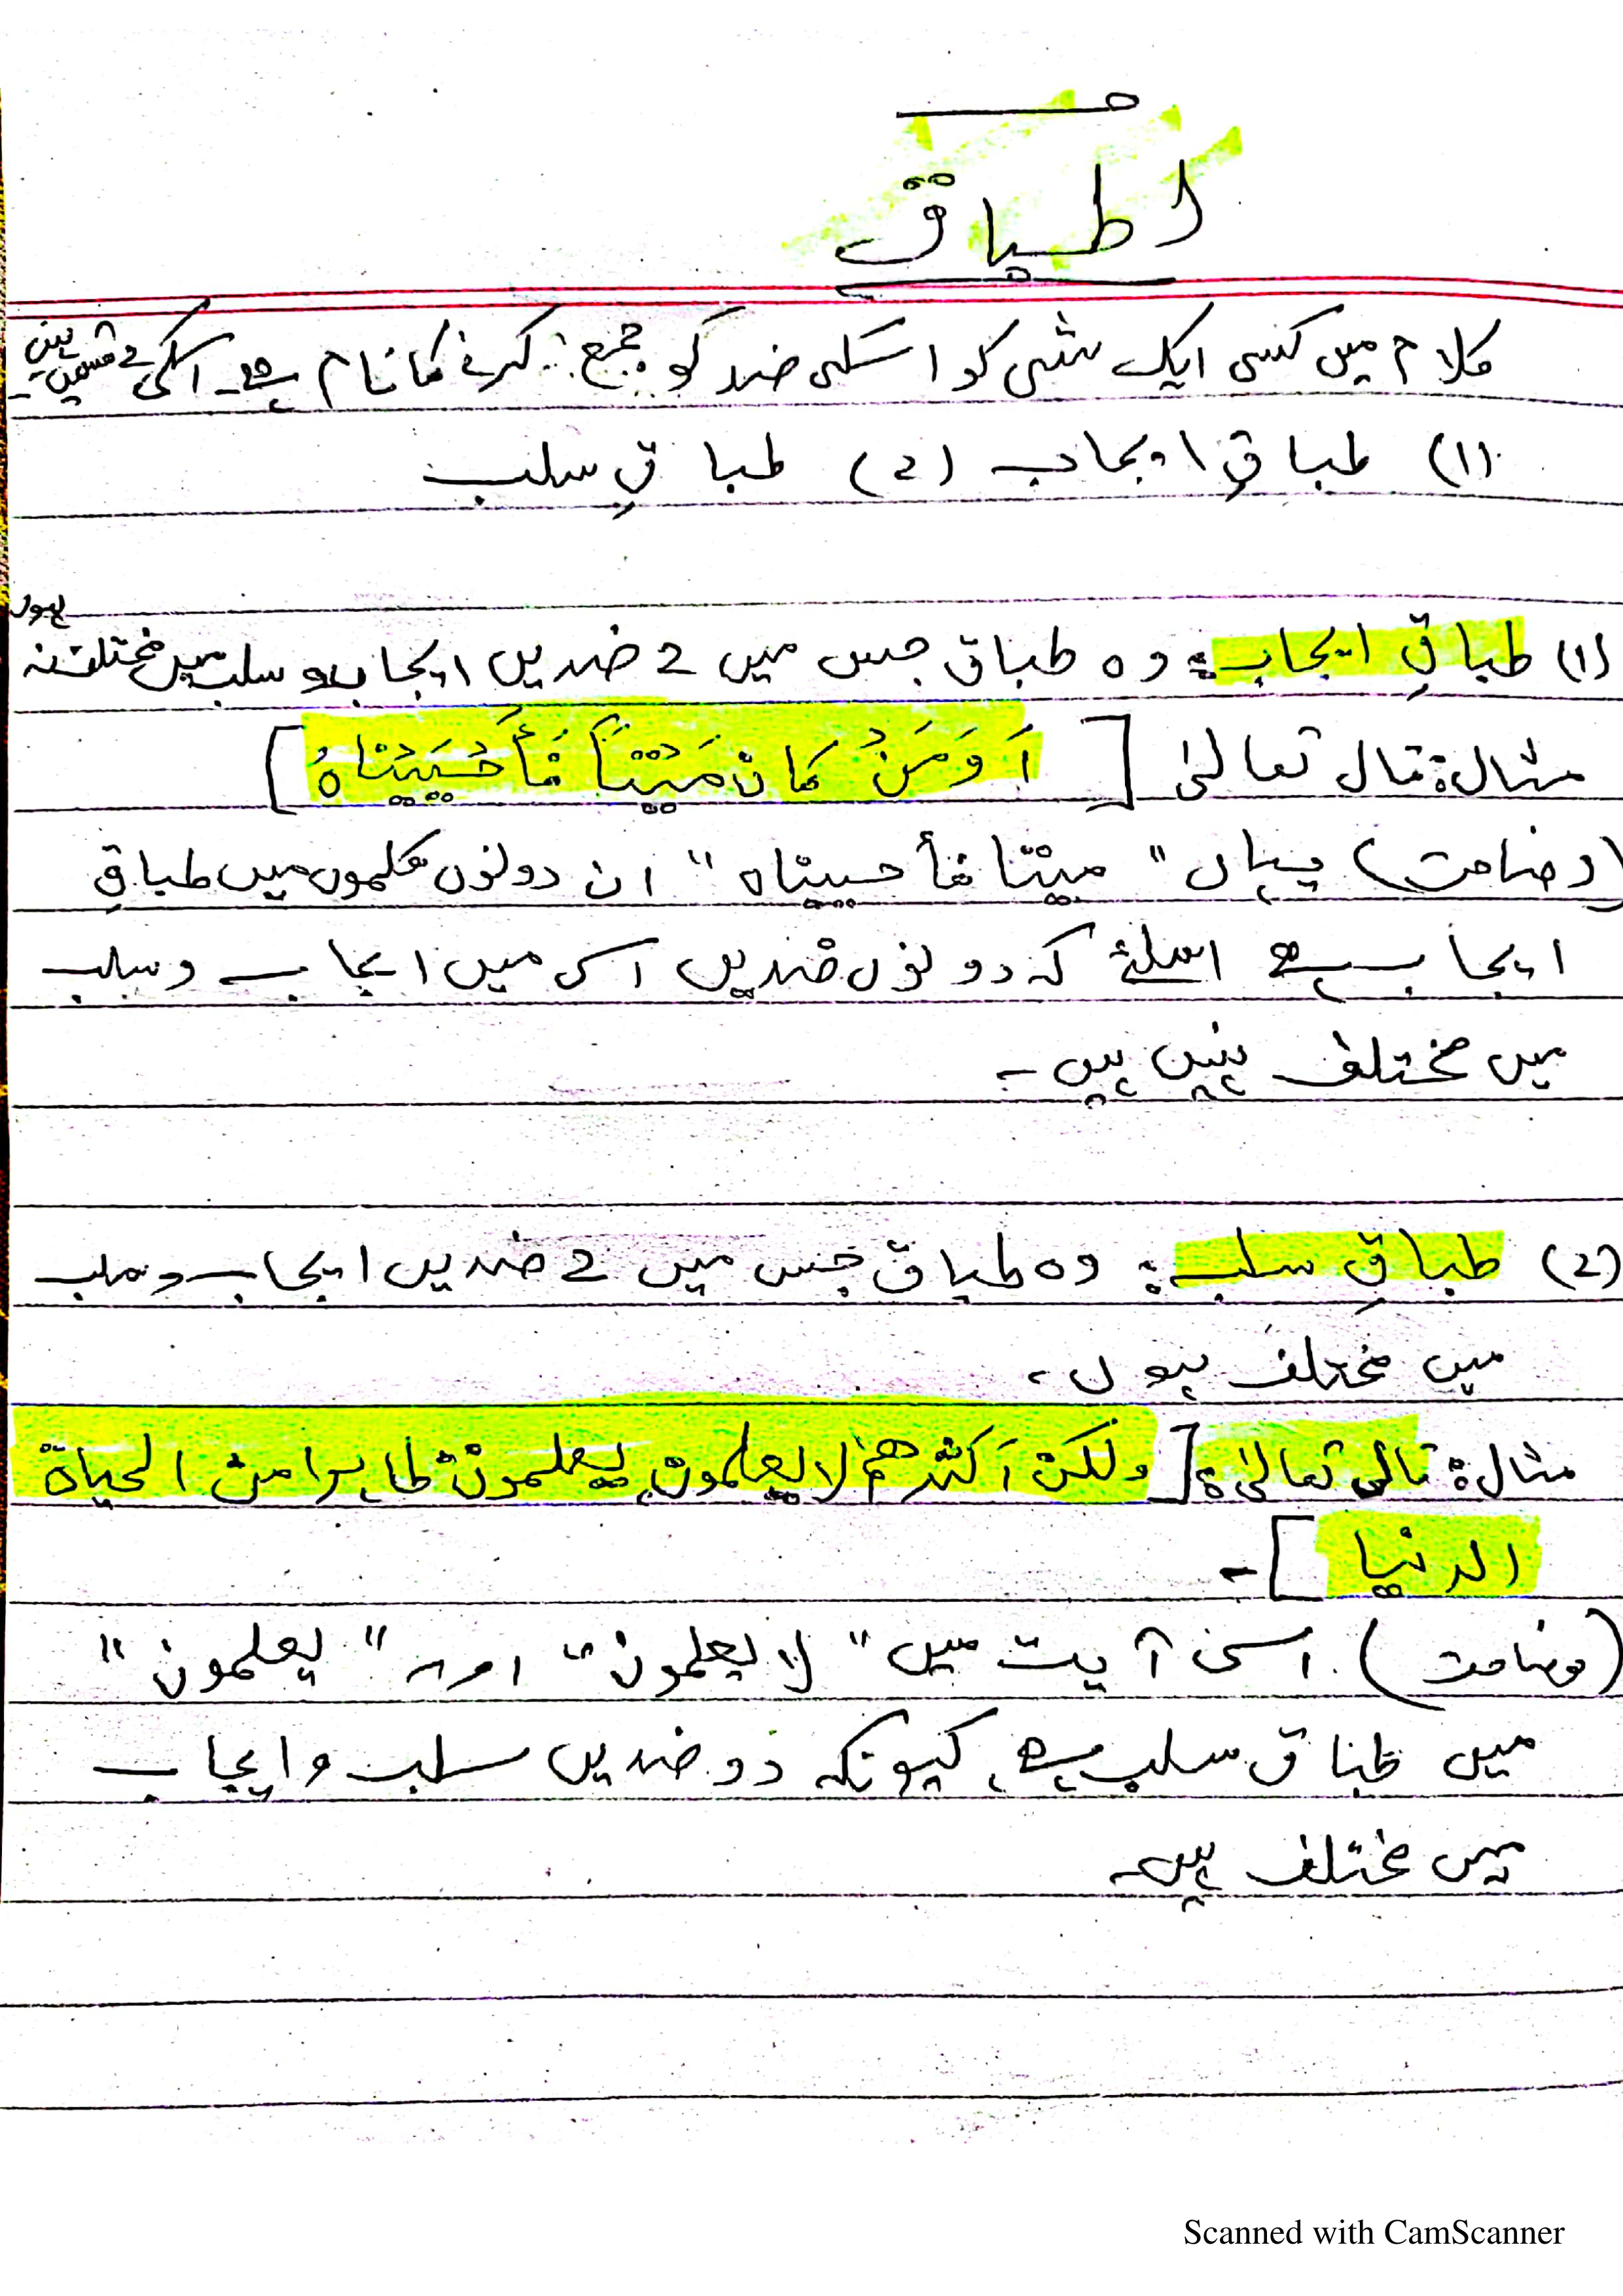 اطباق
کلام میں کسی ایک شئی کو اسکی ضد کو جمع کرنے کا نام ہے۔ اسکی 2 قسمیں ہیں۔
(1) طباقِ ایجاب (2) طباقِ سلب
(1) طباقِ ایجاب: وہ طباق جس میں 2 ضدیں ایجاب و سلب میں مختلف نہ ہوں
مثال: قال تعالیٰ [اَوَمَنْ کان مَیْتًا فَأَحْیَیْنَاہُ]
(وضاحت) یہاں "میتا فأحییناہ" ان دونوں کلموں میں طباقِ
ایجاب ہے اسلئے کہ دونوں ضدیں اس میں ایجاب و سلب
میں مختلف نہیں ہیں۔
(2) طباقِ سلب: وہ طباق جس میں 2 ضدیں ایجاب و سلب
میں مختلف ہوں۔
مثال: قالی تعالیٰ: [ولکن اَکثرھم لا یعلمون یعلمون ظاہرا من الحیاة
الدنیا]۔
(وضاحت) اسی آیت میں "لا یعلمون" اور "یعلمون"
میں طباق سلب ہے کیونکہ دو ضدیں سلب و ایجاب
میں مختلف ہیں۔
Scanned with CamScanner